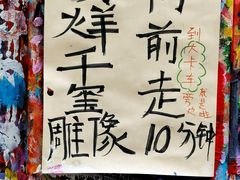 烊千玺
雕像
前走
10分钟
到大卡车
旁边
就是啦